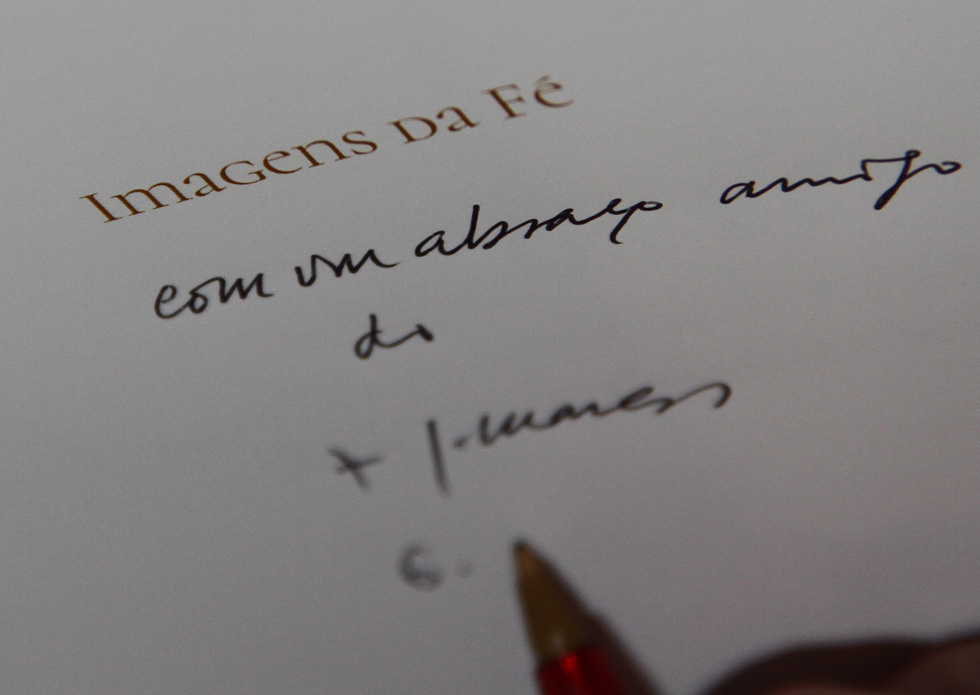 Imagens da Fé
com um abraço amigo
do
+ J. Marcos
6.